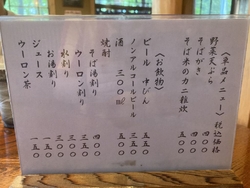 《単品メニュー》 税込価格
野菜天ぷら 四〇〇
そばがき 四〇〇
そば米のカニ雑炊 五五〇
《お飲物》
ビール 中びん 五五〇
ノンアルコールビール
酒 三〇〇㎖
焼酎
そば湯割り
ウーロン割り
水割り
お湯割り
ジュース 一五〇
ウーロン茶 一五〇